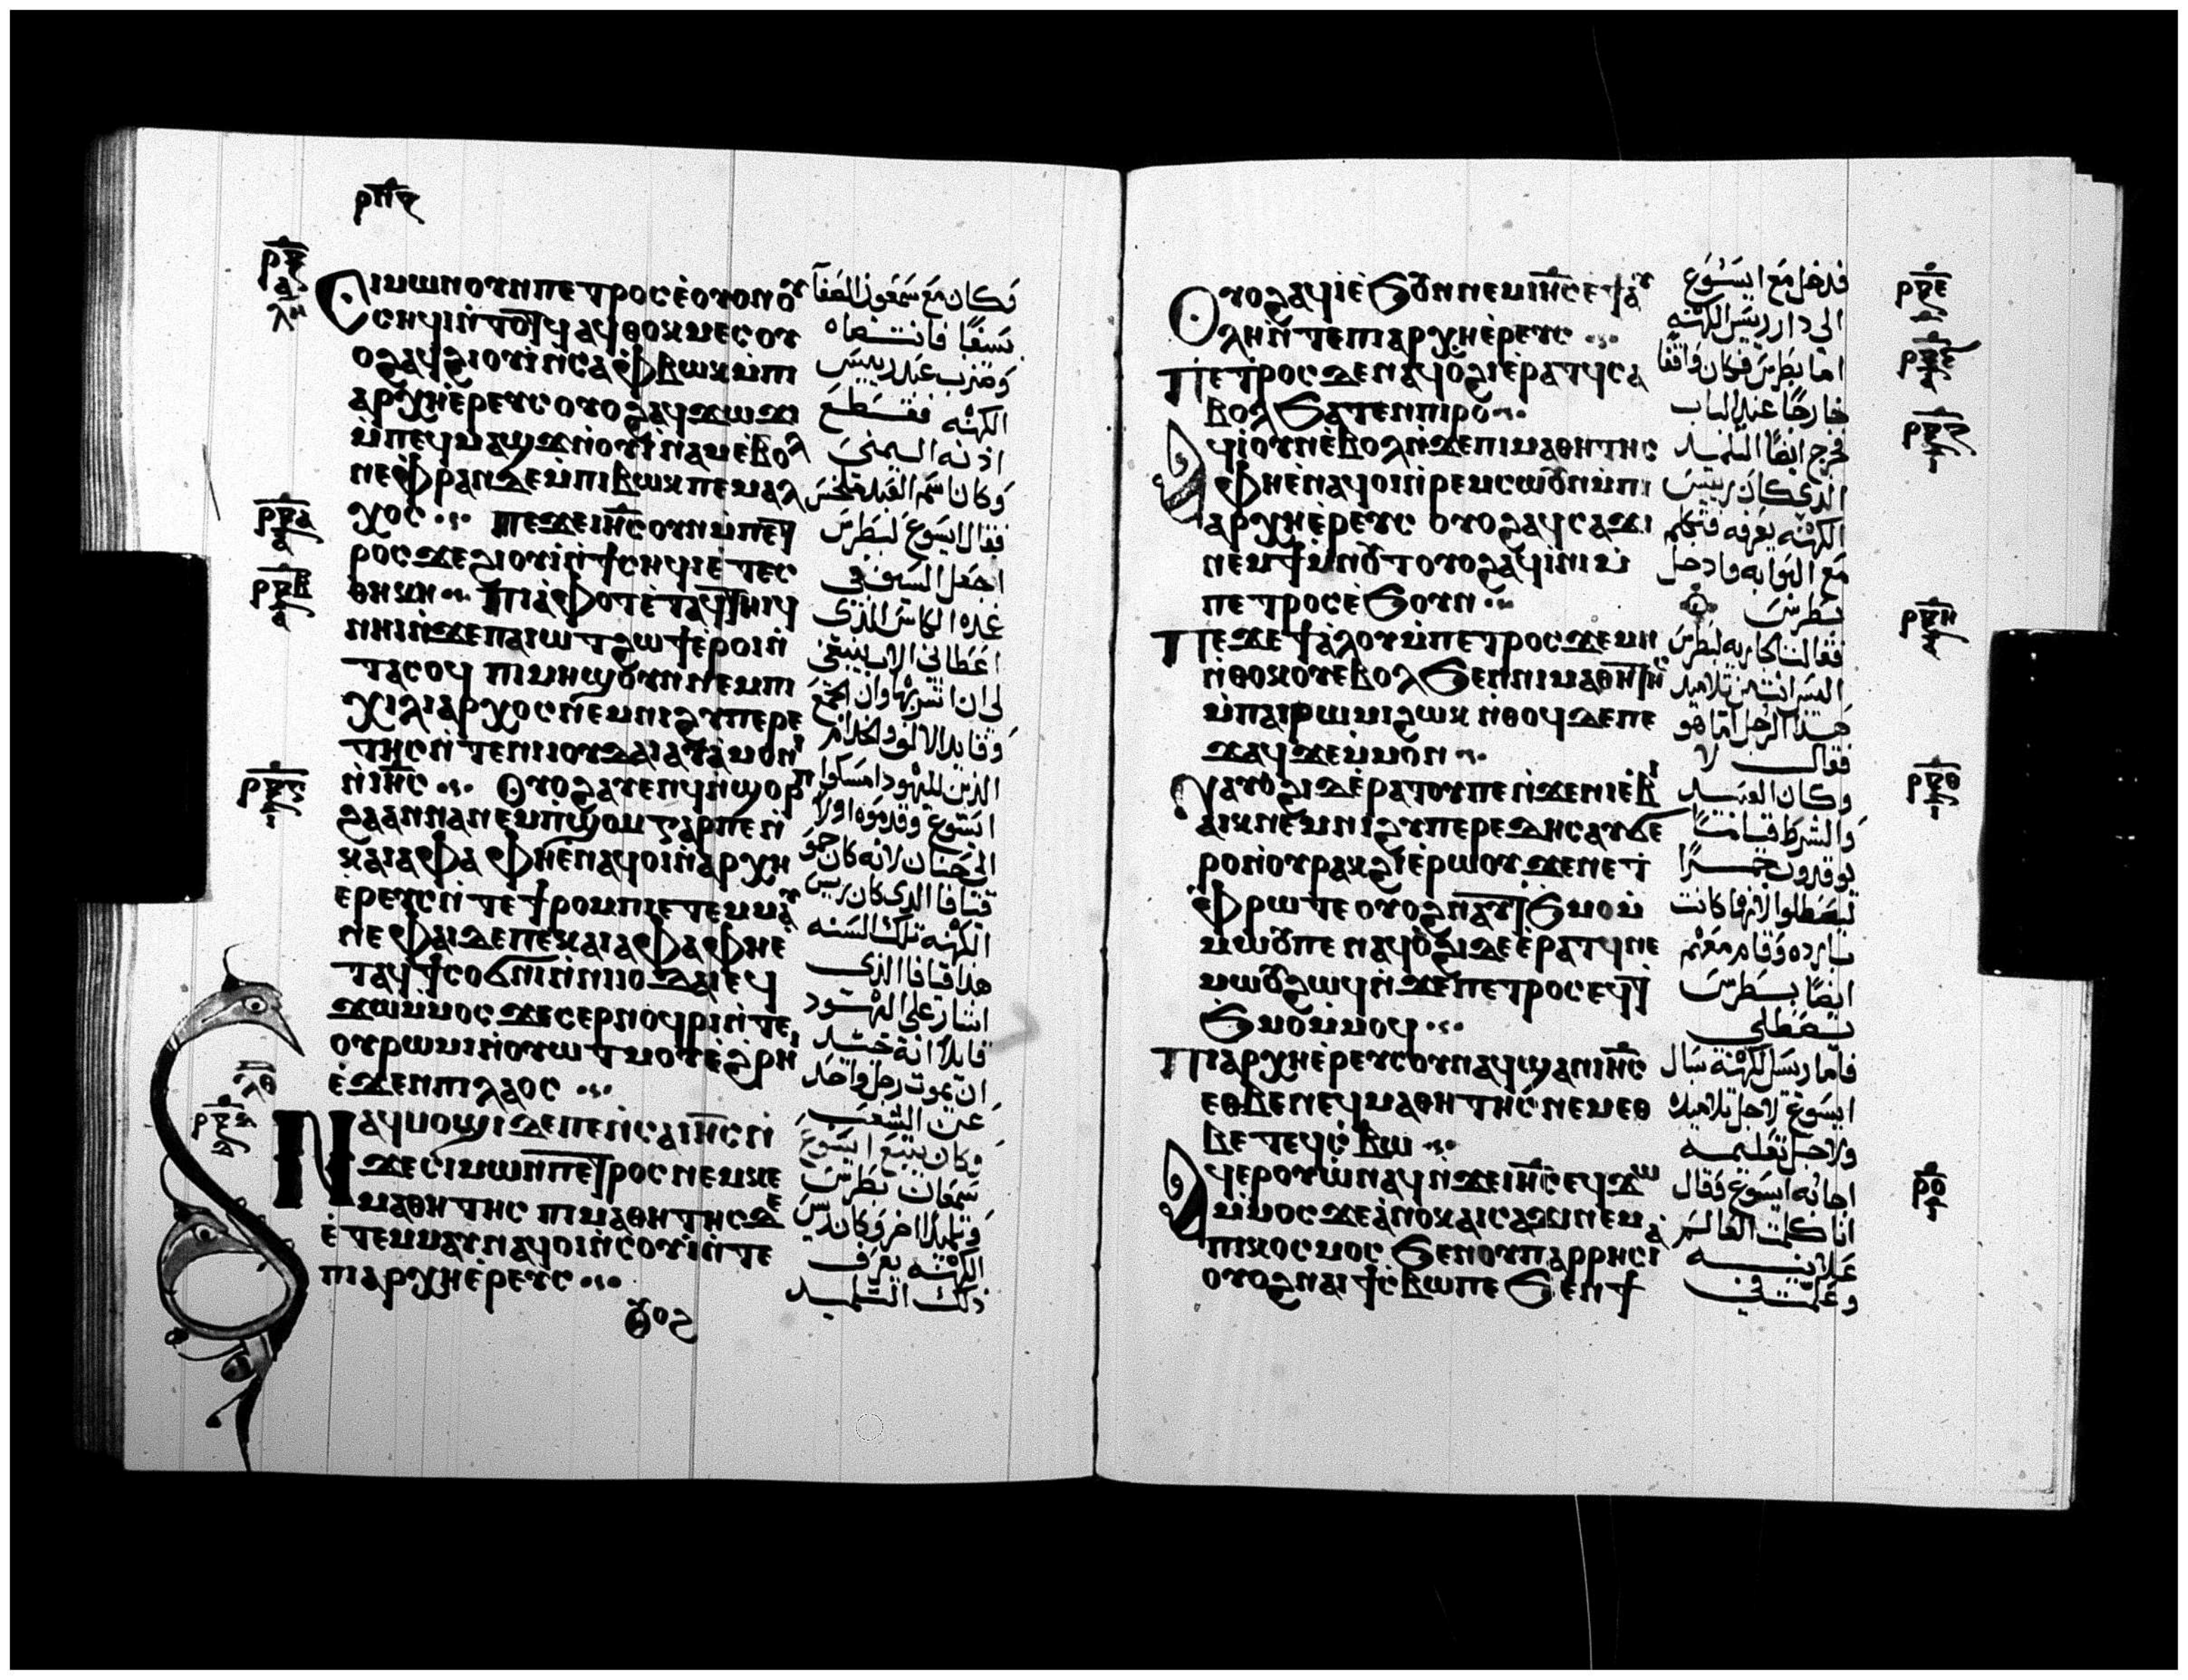 ⲥⲓⲙⲱⲛⲟⲩⲛⲡⲉⲧⲣⲟⲥⲉ̀ⲟⲩⲟⲛⲟⲩ
ⲥⲏϥⲓⲛ̀ⲧⲟⲧϥ ⲁϥⲑⲟⲕⲙⲉⲥⲟⲩ
ⲟϩⲁϥϩⲓⲟⲩⲓ̀ⲛⲥⲁⲫ̀ⲃⲱⲕⲙ̀ⲡⲓ
ⲁⲣⲭⲏⲉ̀ⲣⲉⲩⲥⲟⲩⲟϩⲁϥϫⲱϫⲓ
ⲙ̀ⲡⲉϥⲙⲁϣϫⲛ̀ⲟⲩⲓ̀ⲛⲁⲙⲉ̀ⲃⲟⲗ
ⲛⲉⲫ̀ⲣⲁⲛⲇⲉⲙ̀ⲡⲓⲃⲱⲕⲡⲉⲙⲁⲗ
ⲭⲟⲥ ⲡⲉϫⲉⲓⲏ̅ⲥ̅ⲟⲩⲛⲙ̀ⲡⲉⲧ
ⲣⲟⲥϫⲉϩⲓⲟⲩⲓ̀ⲛ̀ϯⲥⲏϥⲓⲉ̀ⲧⲉⲥ
ⲑⲏⲕⲏ ⲡⲓⲁ̀ⲫⲟⲧⲉ̀ⲧⲁϥⲧⲏⲓϥ
ⲛⲏⲓⲛ̀ϫⲉⲡⲁⲓⲱⲧϩⲱϯⲉ̀ⲣⲟⲓⲛ̀
ⲧⲁⲥⲟϥ ⲡⲓⲙⲏϣⲟⲩⲛⲛⲉⲙⲡⲓ
ⲭⲓⲗⲓⲁⲣⲭⲟⲥⲛⲉⲙⲛⲓϩⲩⲡⲉⲣⲉ
ⲧⲏⲥⲛ̀ⲧⲉⲛⲓⲓⲟⲩⲇⲁⲓⲁⲩⲁ̀ⲙⲟⲛⲓ
ⲛ̀ⲓⲏ̅ⲥ̅ ⲟⲩⲟϩⲁⲩⲉⲛϥⲛ̀ϣⲟⲣⲡ
ϩⲁⲁⲛⲛⲁⲛⲉⲙⲡ̀ϣⲟⲙⲅⲁⲣⲡⲉⲛ̀
ⲕⲁⲓⲁⲫⲁ ⲫⲏⲉ̀ⲛⲁϥⲟⲓⲛ̀ⲁⲣⲭⲏ
ⲉ̀ⲣⲉⲩⲥⲛ̀ⲧⲉϯⲣⲟⲙⲡⲓⲉ̀ⲧⲉⲙⲙⲁⲩ
ⲛⲉⲫⲁⲓⲇⲉⲡⲉⲕⲁⲓⲁⲫⲁⲫⲏⲉ̀
ⲧⲁϥϯⲥⲟϭⲛⲓⲛ̀ⲛⲓⲓⲟⲩⲇⲁⲓⲉϥ
ϫⲱⲙ̀ⲙⲟⲥϫⲉⲥⲉⲣⲛⲟϥⲣⲓⲛ̀ⲧⲉ
ⲟⲩⲣⲱⲙⲓⲛ̀ⲟⲩⲱⲧⲙⲟⲩⲉ̀ϩⲣⲏⲓ
ⲉ̀ϫⲉⲛⲡⲓⲗⲁⲟⲥ
ⲛⲁϥⲙⲟϣⲓⲇⲉⲡⲉⲛ̀ⲥⲁⲓⲏ̅ⲥ̅ⲛ̀
ϫⲉⲥⲓⲙⲱⲛⲡⲉⲧⲣⲟⲥⲛⲉⲙⲕⲉ
ⲙⲁⲑⲏⲧⲏⲥ ⲡⲓⲙⲁⲑⲏⲧⲏⲥⲇⲉ
ⲉ̀ⲧⲉⲙⲙⲁⲩⲛⲁϥⲟⲓⲛ̀ⲥⲟⲩⲓ̀ⲛ̀ⲧⲉ
ⲡⲓⲁⲣⲭⲏⲉ̀ⲣⲉⲩⲥ
ⲟⲩⲟϩ
وكان مع سمعون الصفا
سيفا فانتضاه
وضرب عبد رييس
الكهنه فقطع
اذنه اليمنى
وكان اسم العبد ملخس
فقال ايسوع لبطرس
اجعل السيف في
غمده الكاس الذى
اعطاني الاب ينبغي
لى ان اشربها وان الجمع
وقايد الالوف وخدام
الذين لليهود امسكوا
ايسوع وقدموه اولا
الى حنان لانه كان حمو
قيافا الذى كان رييس
الكهنه تلك السنه
هذا قيافا الذى
اشار على اليهود
قايلا انه خير
ان يموت رجل واحد
عن الشعب
وكان يتبع ايسوع
سمعان بطرس
وتلميذ اخر وكان رييس
الكهنه يعرف
ذلك التلميد
ⲟⲩⲟϩⲁϥⲓⲉ̀ϧⲟⲩⲛⲛⲉⲙⲓⲏ̅ⲥ̅ⲉ̀ϯⲁⲩ
ⲗⲏⲛ̀ⲧⲉⲡⲓⲁⲣⲭⲏⲉ̀ⲣⲉⲩⲥ
ⲡⲉⲧⲣⲟⲥⲇⲉⲛⲁϥⲟ̀ϩⲓⲉ̀ⲣⲁⲧϥⲥⲁ
ⲃⲟⲗϧⲁⲧⲉⲛⲡⲓⲣⲟ
ⲁϥⲓⲟⲩⲛⲉ̀ⲃⲟⲗⲛ̀ϫⲉⲡⲓⲙⲁⲑⲏⲧⲏⲥ
ⲫⲏⲉ̀ⲛⲁϥⲟⲓⲛ̀ⲣⲉⲙⲥⲱⲟⲩⲛⲙ̀ⲡⲓ
ⲁⲣⲭⲏⲉ̀ⲣⲉⲩⲥ ⲟⲩⲟϩⲁϥⲥⲁϫⲓ
ⲛⲉⲙϯⲙ̀ⲛⲟⲩⲧⲟⲩⲟϩⲁϥⲓ̀ⲛⲓⲙ̀
ⲡⲉⲧⲣⲟⲥⲉ̀ϧⲟⲩⲛ
ⲡⲉϫⲉϯⲁ̀ⲗⲟⲩⲙ̀ⲡⲉⲧⲣⲟⲥϫⲉⲙⲏ
ⲛ̀ⲑⲟⲕⲟⲩⲉⲃⲟⲗϧⲉⲛⲛⲓⲙⲁⲑⲏⲧⲏⲥ
ⲙ̀ⲡⲁⲓⲣⲱⲙⲓϩⲱⲕ ⲛ̀ⲑⲟϥⲇⲉⲡⲉ
ϫⲁϥϫⲉⲙ̀ⲙⲟⲛ
ⲛⲁⲩⲟ̀ϩⲓⲇⲉ̀ⲣⲁⲧⲟⲩⲡⲉⲛ̀ϫⲉⲛⲓⲉ̀ⲃⲓ
ⲁⲓⲕⲛⲉⲙⲛⲓϩⲩⲡⲉⲣⲉⲇⲏⲥⲁⲩϭⲉ
ⲣⲟⲛ̀ⲟⲩⲣⲁⲕϩⲓⲉ̀ⲣⲱⲟⲩϫⲉⲛⲉⲧ
ⲫ̀ⲣⲱⲧⲉⲟⲩⲟϩⲛⲁⲩϯϧⲙⲟⲙ̀
ⲙⲱⲟⲩⲡⲉ ⲛⲁϥⲟ̀ϩⲓⲇⲉⲉ̀ⲣⲁⲧϥⲛⲉ
ⲙⲱⲟⲩϩⲱϥⲛ̀ϫⲉⲡⲉⲧⲣⲟⲥⲉϥϯ
ϧⲙⲟⲙⲙⲟϥ
ⲡⲓⲁⲣⲭⲏⲉ̀ⲣⲉⲩⲥⲟⲩⲛⲁϥϣⲁⲛⲓⲏ̅ⲥ̅
ⲉⲑⲃⲉⲛⲉϥⲙⲁⲑⲏⲧⲏⲥⲛⲉⲙⲉⲑ
ⲃⲉⲧⲉϥⲥ̀ⲃⲱ
ⲁϥⲉⲣⲟⲩⲱ̀ⲛⲁϥⲛ̀ϫⲉⲓⲏ̅ⲥ̅ⲉϥϫⲱ
ⲙ̀ⲙⲟⲥϫⲉⲁ̀ⲛⲟⲕⲁⲓⲥⲁϫⲓⲛⲉⲙ
ⲡⲓⲕⲟⲥⲙⲟⲥ ϧⲉⲛⲟⲩⲡⲁⲣⲣⲏⲥⲓⲁ
ⲟⲩⲟϩⲛⲁⲓϯⲥ̀ⲃⲱⲡⲉ ϧⲉⲛϯ
فدخل مع ايسوع
الى دار رييس الكهنه
اما بطرس فكان واقفا
خارجا عند الباب
فخرج ايضا التلميد
الذي كان رييس
الكهنه يعرفه فتكلم
مع البوابه فادخل
بطرس
فقالت الجاريه لبطرس
اليس انت من تلاميد
هذا الرجل اما هو
فقال لا
وكان العبيد
والشرط قيامنا
يوقدون جمرا
ليصطلوا لانها كانت
بارده وقام معهم
ايضا بطرس
يصطلي
فاما رييس الكهنه سال
ايسوع لاجل تلاميده
ولاجل تعليمه
اجابه ايسوع فقال
انا كلمت العالم
علانيه
وعلمت في